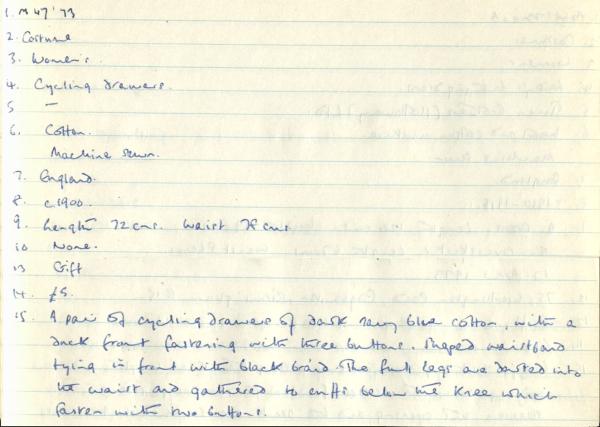 1. M 47' 73
2. Costume
3. Women's.
4. Cycling drawers.
5 —
6. Cotton.
Machine sewn.
7. England.
8. c.1900.
9. Length 72 cms. Waist 78 cms
10 None.
13 Gift
14. £5.
15. A pair of cycling drawers of dark navy blue cotton, with a
front fastening with three buttons. Shaped waistband
tying in front with black braid. The full legs are darted into
the waist and gathered to cuffs below the knee which
fasten with two buttons.